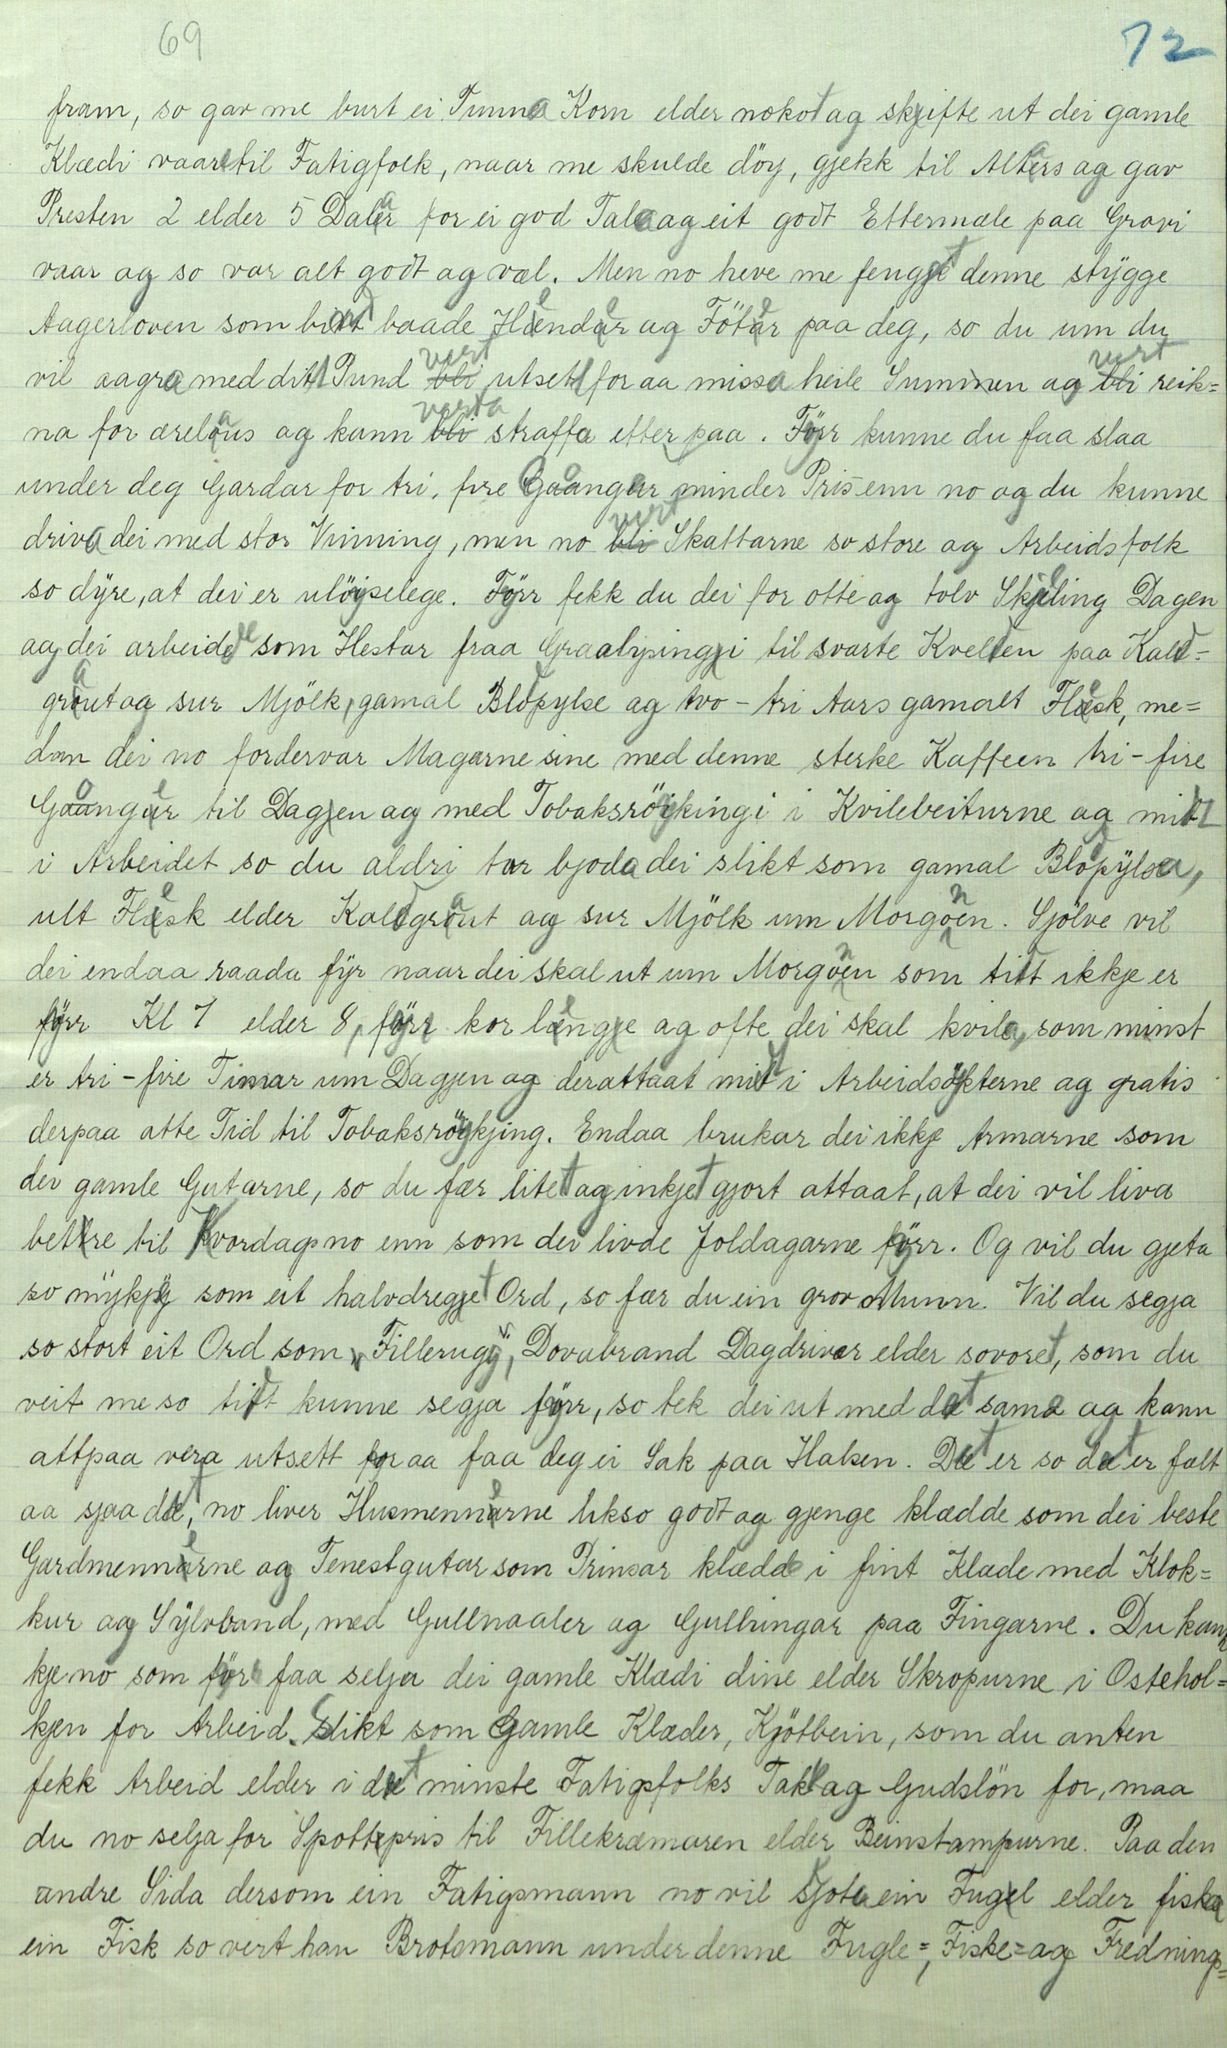 69
72
fram, so gav me burt ei Tunna Korn elder nokot ag skifte ut dei gamle
Klædi vaare til Fatigfolk, naar me skulde döy, gjekk til Alters ag gav
Presten 2 elder 5 Dalar for ei god Tale ag eit godt Ettermæle paa Gravi
vaar ag so var alt godt ag væl. Men no heve me fenget denne stygge
Aagerloven som bind baade Hender ag Föter paa deg, so du um du
vil aagra med ditt Pund vert utsett for aa missa heile Summen ag vert reik=
na for ærelaus ag kann verta straffa etter paa. Fyrr kunne du faa slaa
under deg Gardar for tri, fire Gonger minder Pris enn no ag du kunne
driva dei med stor Vinning, men no vert Skattarne so store ag Arbeidsfolk
so dyre, at dei er uløyselege. Fyrr fekk du dei for otte ag tolv Skjeling Dagen
ag dei arbeidde som Hestar fraa Graalysingi til svarte Kvelden paa Kald=
graut ag sur Mjölk, gamal Blodpylse ag tvo-tri Aars gamalt Flesk, me=
dan dei no fordervar Magarne sine med denne sterke Kaffeen tri-fire
Gonger til Dagen ag med Tobaksröykingi i Kvilebeiturne ag midt
i Arbeidet so du aldri tor bjoda dei slikt som gamal Blodpylsa,
ult Flesk elder Kaldgraut ag sur Mjölk um Morgonen. Sjölve vil
dei endaa raada fyr naar dei skal ut um Morgonen som titt ikkje er
fyrr Kl 7 elder 8, fyrr kor lenge ag ofte dei skal kvila, som minst
er tri-fire Timar um Dagjen ag derattaat midt i Arbeidsökterne ag gratis
derpaa atte Tid til Tobaksröykjing. Endaa brukar dei ikkje Armarne som
dei gamle Gutarne, so du fær litet ag inkjet gjort attaat, at dei vil liva
betre til Kvordags no enn som dei livde Joldagarne fyrr. Og vil du gjeta
so mykje som eit halvdregjet Ord, so fær du ein grov Munn. Vil du segja
so stort eit Ord som „Fillerugg", Dovabrand Dagdrivar elder sovoret, som du
veit me so tidt kunne segja fyrr, so tek dei ut med det sama ag kann
attpaa vera utsett for aa faa deg ei Sak paa Halsen. Det er so det er fælt
aa sjaa det, no liver Husmennerne likso godt ag gjenge klædde som dei beste
Gardmennerne ag Tenestgutar som Prinsar klædde i fint Klæde med Klok=
kur ag Sylvband, med Gullnaaler ag Gullringar paa Fingarne. Du kann
kje no som fyrr faa selja dei gamle Klædi dine elder Skropurne i Ostehol=
kjen for Arbeid. Slikt som Gamle Klæder, Kjötbein, som du anten
fekk Arbeid elder i det minste Fatigsfolks Takk ag Gudslön for, maa
du no selja for Spottpris til Fillekræmaren elder Beinstampurne. Paa den
andre Sida dersom ein Fatigsmann no vil skjota ein Fugel elder fiska
ein Fisk so vert han Brotsmann under denne Fugle=, Fiske= ag Frednings=